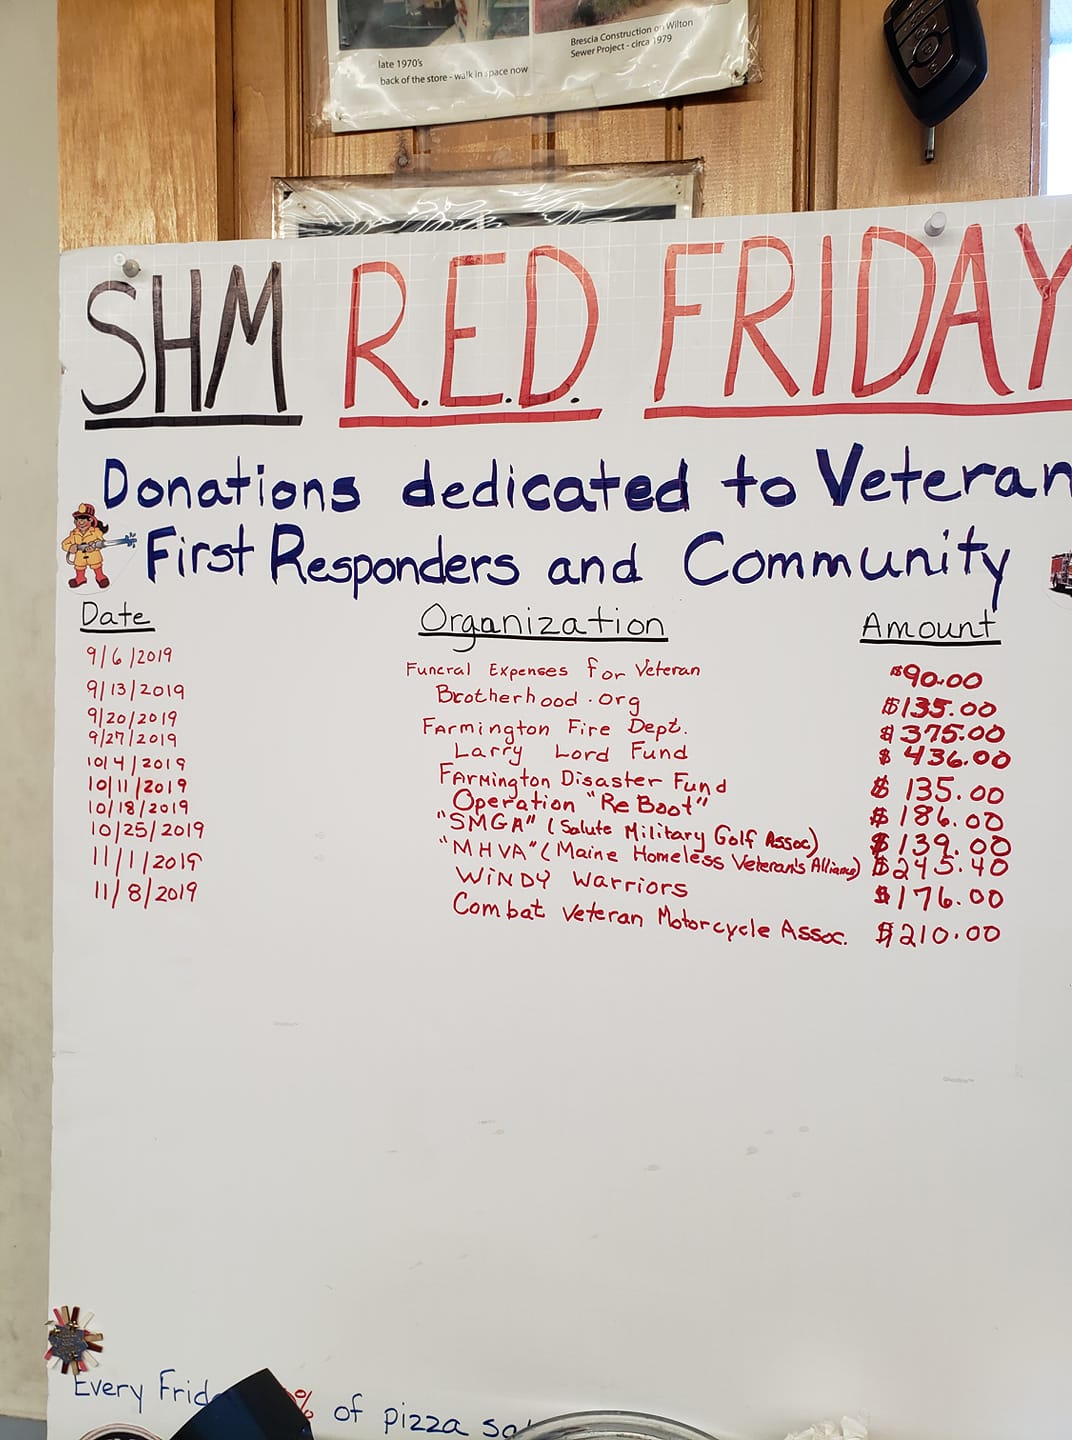 late 1970's
back of the store - walk in space now
Brescia Construction on Wilton
Sewer Project - circa 1979
SHM R.E.D. FRIDAY
Donations dedicated to Veteran
First Responders and Community
Date Organization Amount
9/6/2019 Funeral Expenses for Veteran $90.00
9/13/2019 Brotherhood.org $135.00
9/20/2019 Farmington Fire Dept. $375.00
9/27/2019 Larry Lord Fund $436.00
10/4/2019 Farmington Disaster Fund $135.00
10/11/2019 Operation "Re Boot" $186.00
10/18/2019 "SMGA" (Salute Military Golf Assoc) $139.00
10/25/2019 "MHVA" (Maine Homeless Veteran's Alliance) $245.40
11/1/2019 WiNDY Warriors $176.00
11/8/2019 Combat Veteran Motorcycle Assoc. $210.00
Every % of pizza